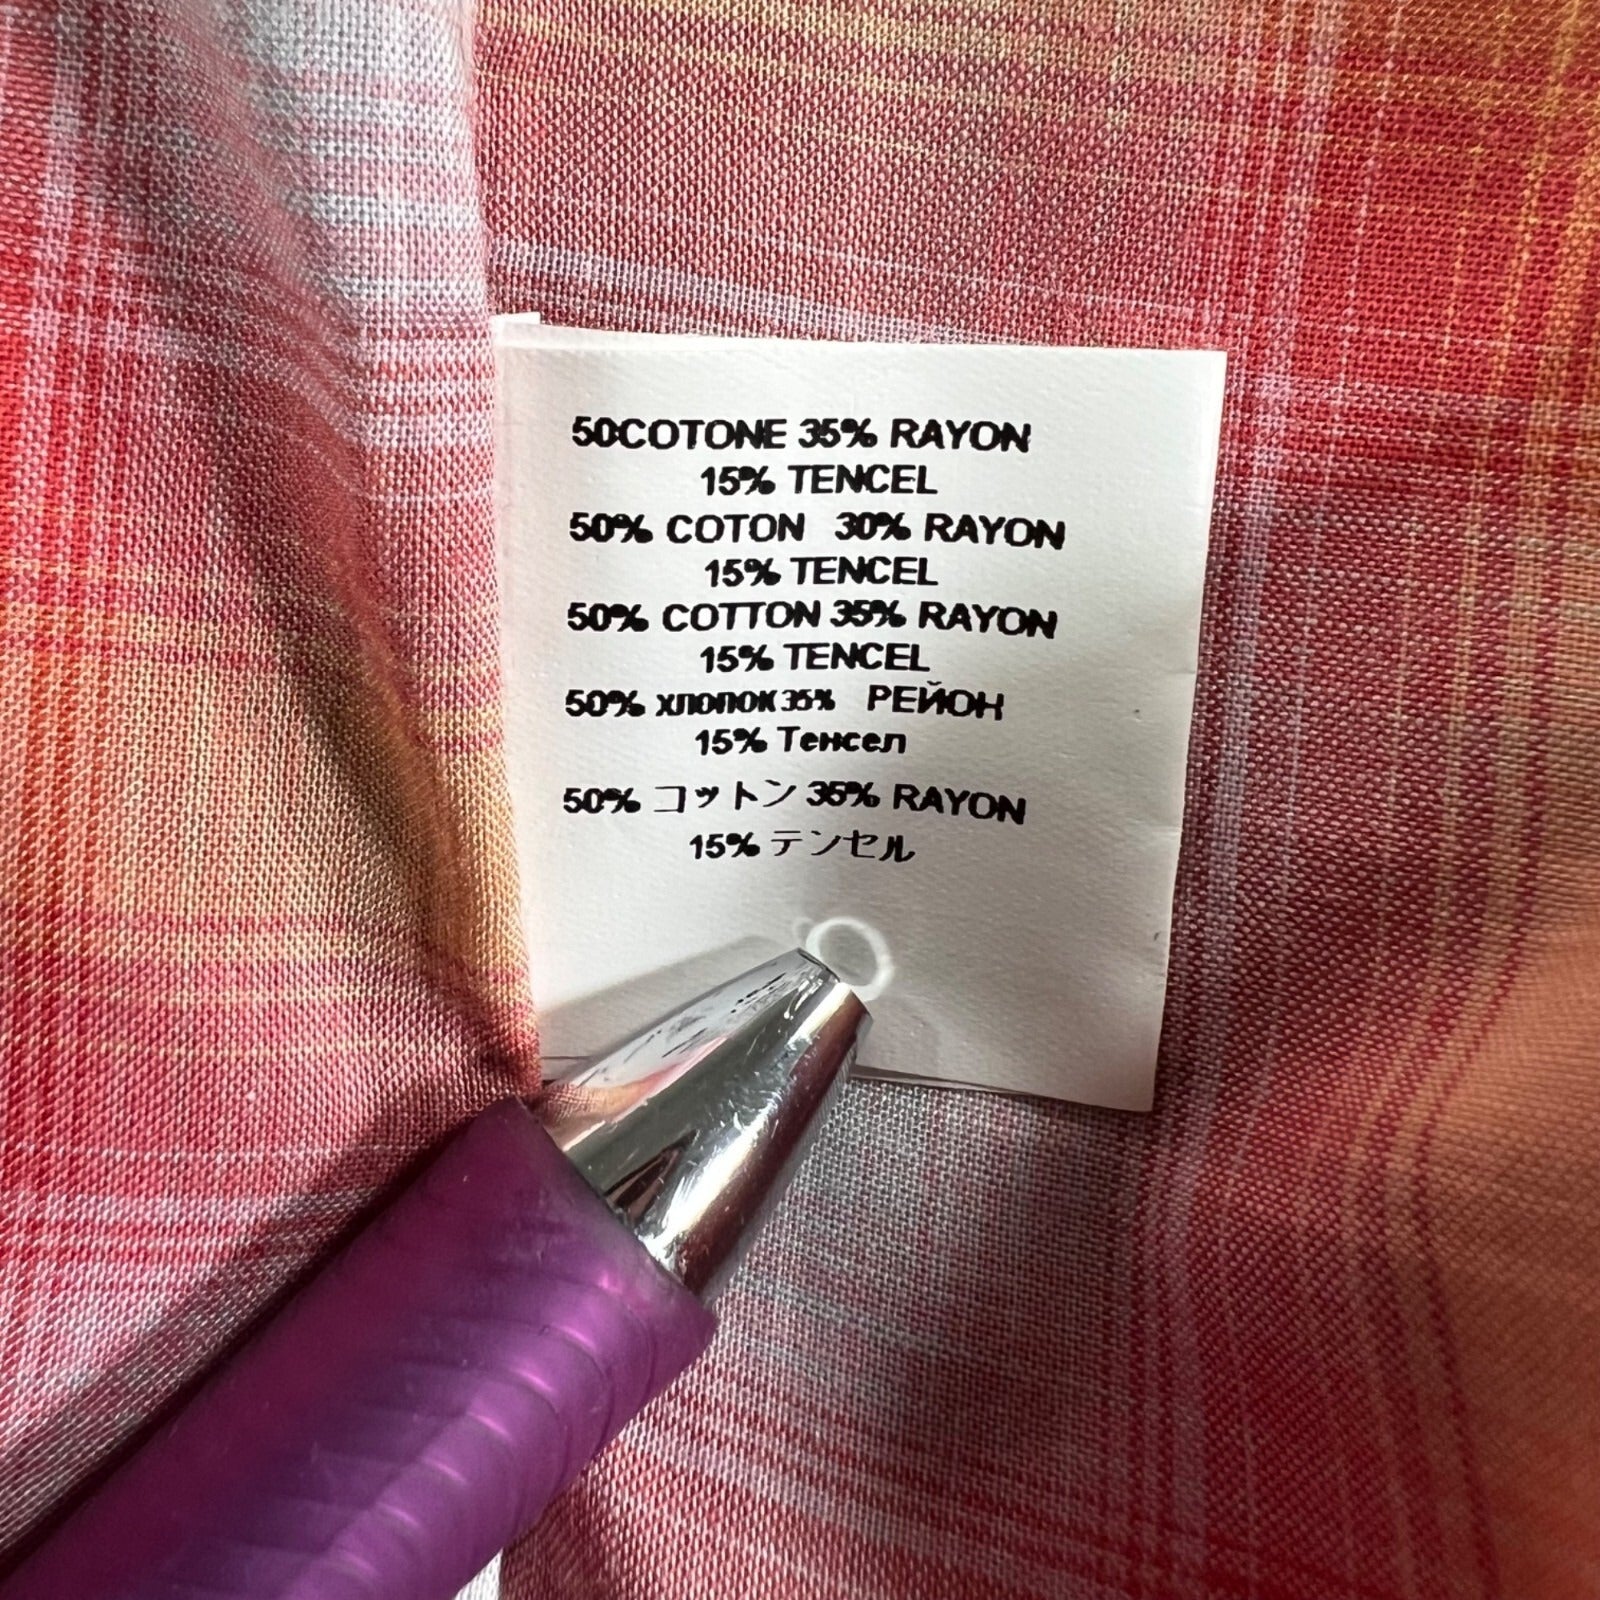 50COTONE 35% RAYON
15% TENCEL
50% COTON 30% RAYON
15% TENCEL
50% COTTON 35% RAYON
15% TENCEL
50% хлопок 35% РЕЙОН
15% Тенсел
50% コットン 35% RAYON
15% テンセル